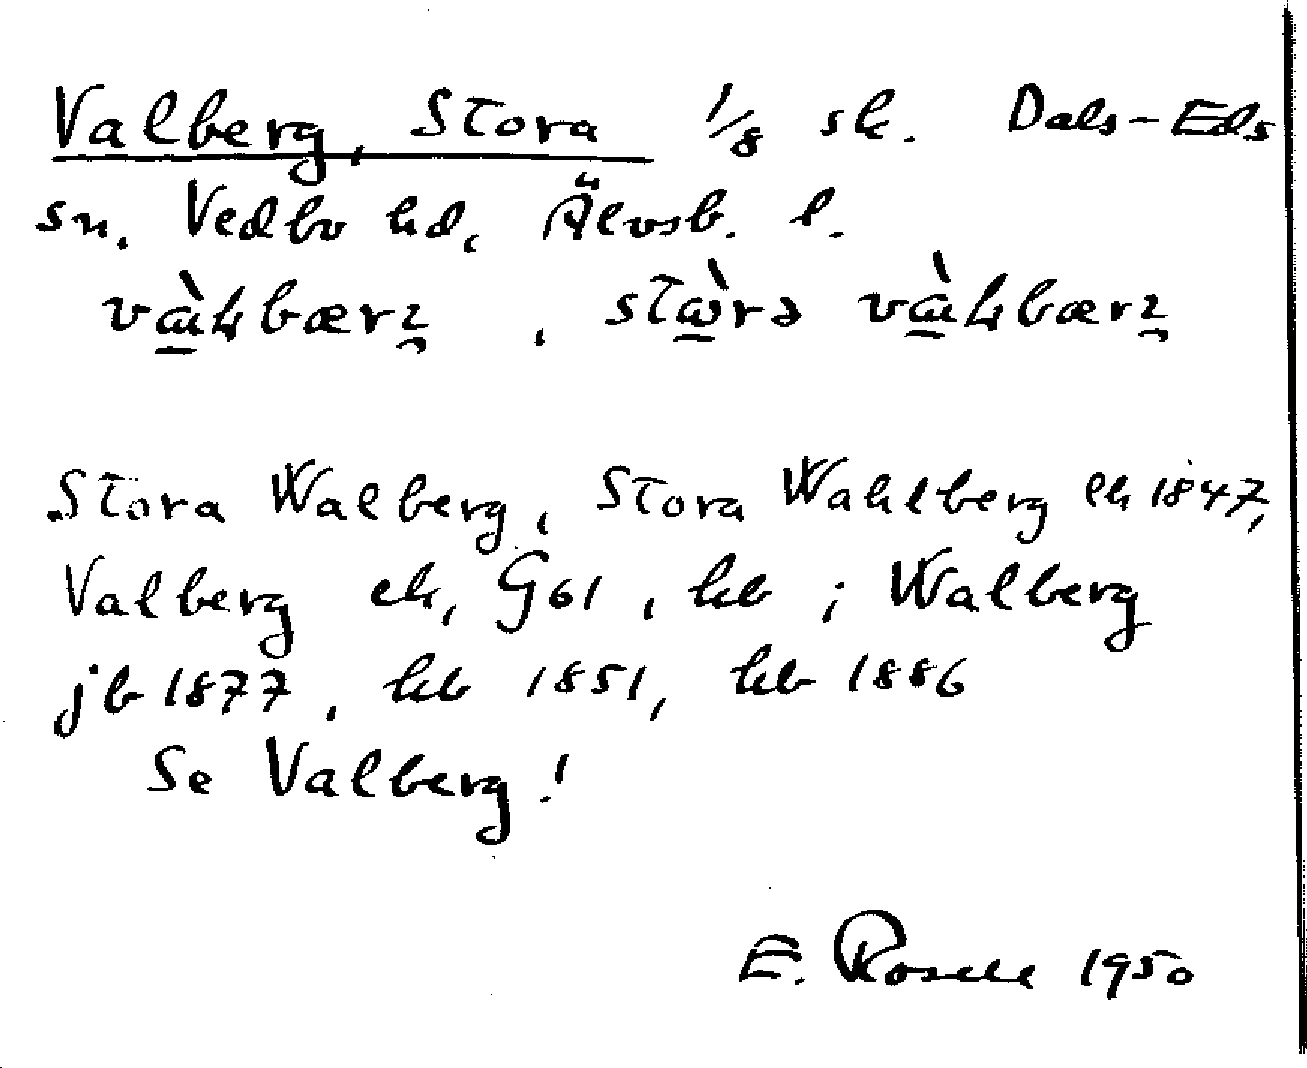 Valberg, Stora 1/8 sk. Dals-Eds
sn. Vedbo hd, Älvsb. l.
Stora Walberg, Stora Wahlberg lh 1847,
Valberg ek, G61, hb ; Walberg
jb 1877, hb 1851, hb 1886
Se Valberg!
E. Rosell 1950